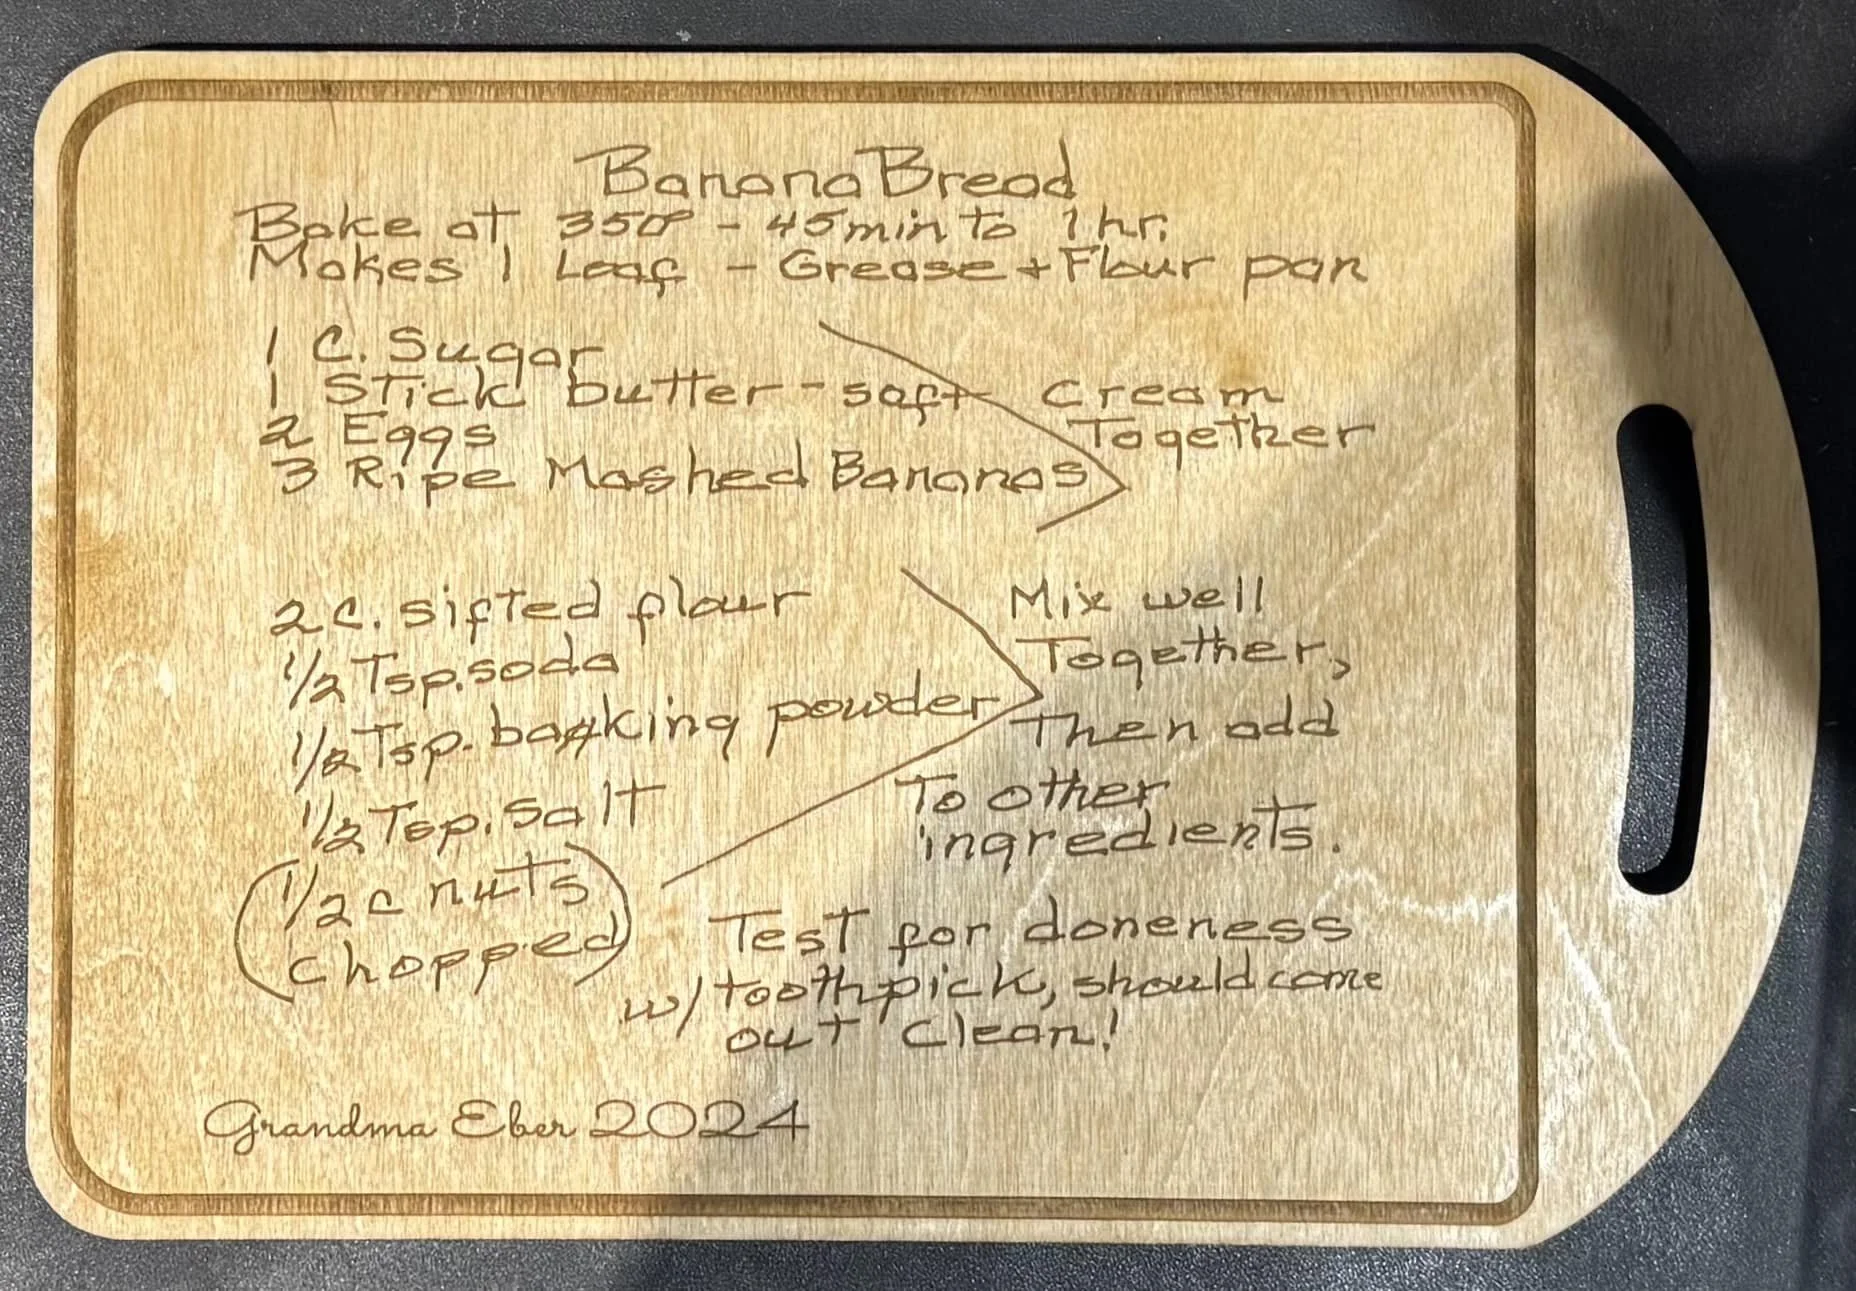 Banana Bread
Bake at 350° - 45 min to 1 hr.
Makes 1 Loaf - Grease + Flour pan
1 C. Sugar
1 Stick butter - soft
2 Eggs
3 Ripe Mashed Bananas
Cream
Together
2 C. sifted flour
1/2 Tsp. soda
1/2 Tsp. baking powder
1/2 Tsp. salt
(1/2 c nuts
chopped)
Mix well
Together,
Then add
To other
ingredients.
Test for doneness
w/ toothpick, should come
out clean!
Grandma Eber 2024